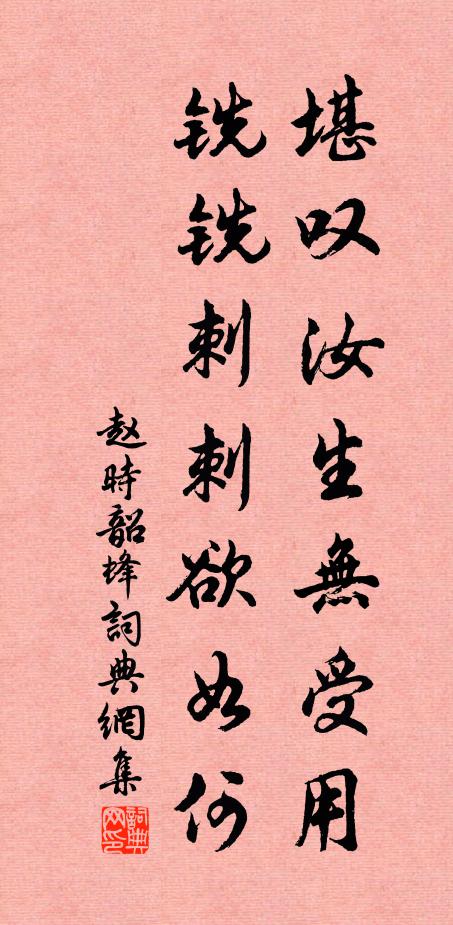 堪叹汝生無受用
铣铣刺刺欲如何
赵時韶烽詞典網集
詞典网印